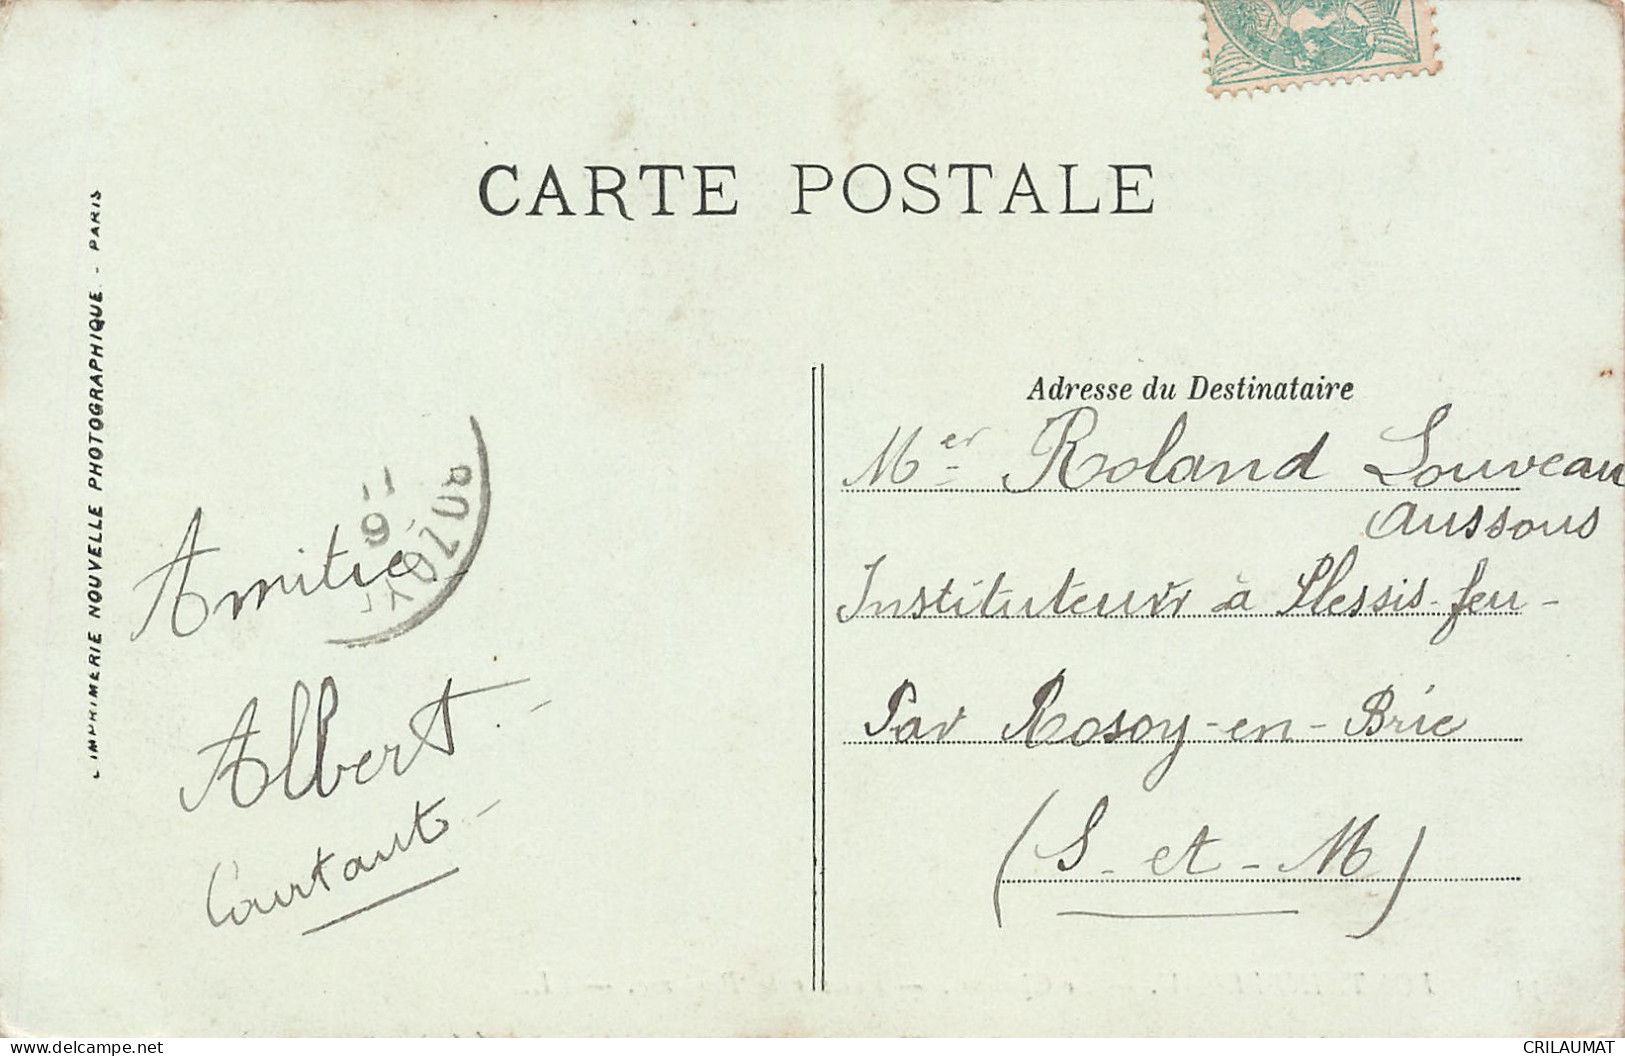 CARTE POSTALE
IMPRIMERIE NOUVELLE PHOTOGRAPHIQUE - PARIS
Adresse du Destinataire
Mer Roland Louveau
aussous
Instituteur à Plessis-feu-
Par Rosoy-en-Brie
(S.-et-M)
Amitié
Albert.-
Courtaut-
11
9
ROZOY
CRILAUMAT